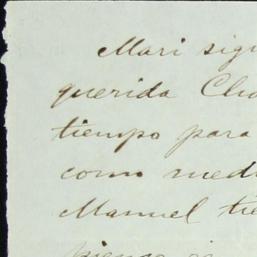 Mari sigu
querida Cha
tiempo para
como medi
Manuel tie